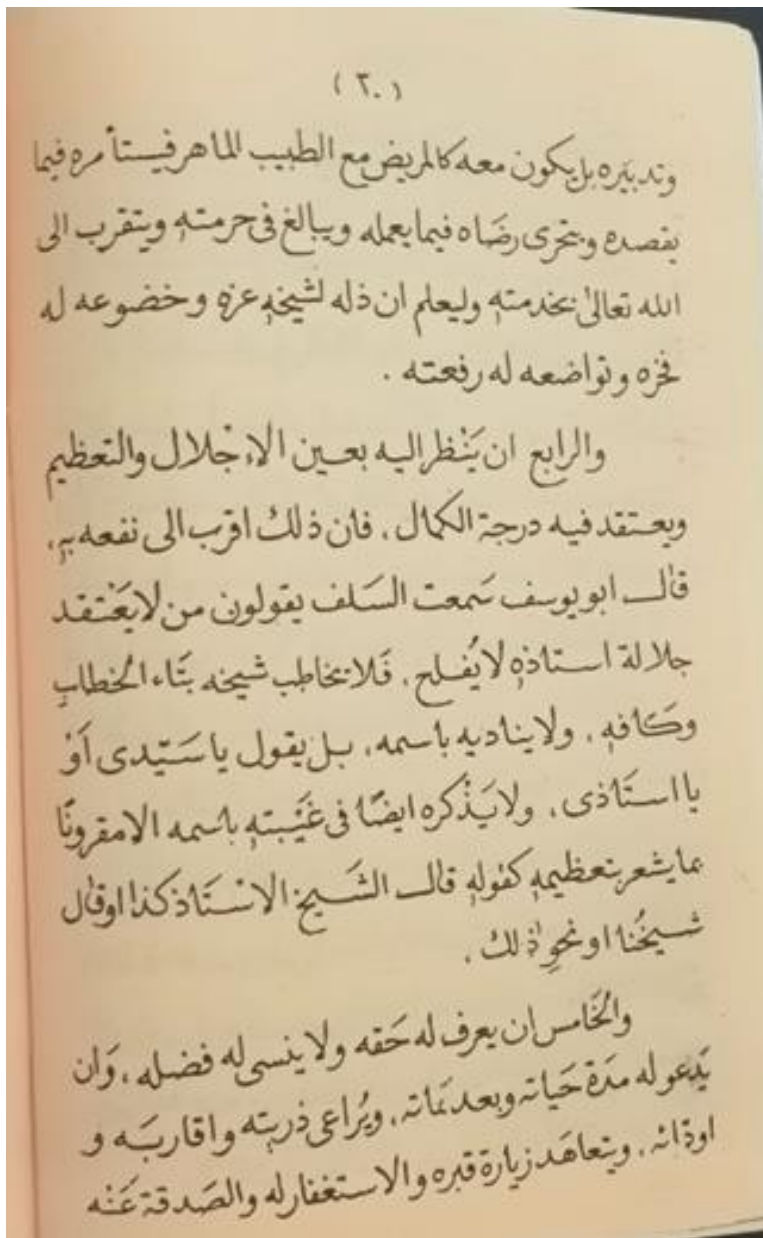 ( ٣٠ )
وتدبيره بل يكون معه كالمريض مع الطبيب الماهر فيستأمره فيما
يقصده ويتحرى رضَاه فيما يعمله ويبالغ فى حرمتهِ ويتقرب الى
الله تعالىٰ بخدمتهِ وليعلم ان ذله لشيخهِ عزه وخضوعه له
فخره وتواضعه له رفعته .
والرابع ان يَنْظر اليه بعين الاِجْلال والتعظيم
ويعتقد فيه درجة الكمال . فان ذلك اقرب الى نفعه بهِ .
قال ابو يوسف سَمعت السَلف يقولون من لا يَعْتقد
جلالة استاذهِ لا يُفلح . فَلا يخاطب شيخه بتَاء الخطابِ
وكَافهِ . ولا يناديه باسمه . بل يقول يا سَيّدى اَوْ
يا استَاذى . ولا يَذْكره ايضًا فى غَيْبتهِ باسمه الا مقرونًا
بما يشعر بتعظيمهِ كقولهِ قال الشَيخ الاسْتَاذ كذا او قال
شيخُنا او نحوِ ذٰلك .
والخَامس ان يعرف له حَقه ولا ينسى له فضله . وَان
يَدعو له مدَة حَياته وبعد مَماته . ويُراعى ذريته واقاربَه و
اودّائه . ويتعاهَد زيارة قبره والاستغفار له والصَدقة عَنْه